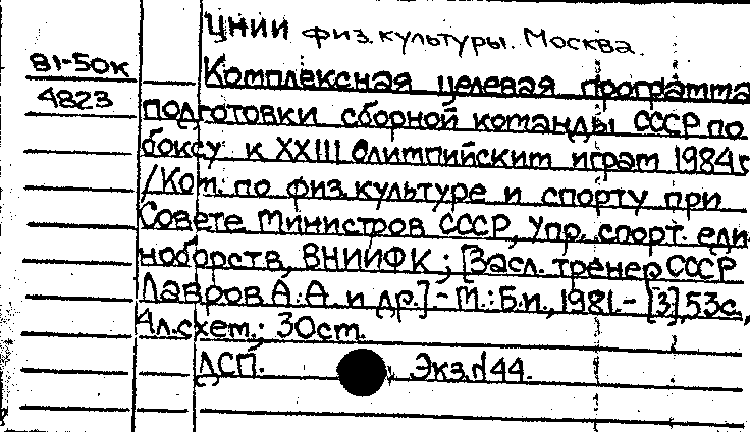 ЦНИИ физ. культуры. Москва.
81-50к
Комплексная целевая программа
4823
подготовки сборной команды СССР по
боксу к XXIII Олимпийским играм 1984г
/Ком. по физ. культуре и спорту при
Совете Министров СССР, Упр. спорт. еди-
ноборств, ВНИИФК; [Засл. тренер СССР
Лавров А.А. и др.] - М.: Б.и., 1981. - [3], 53с.,
4л. схем.; 30см.
ДСП. Экз. N44.